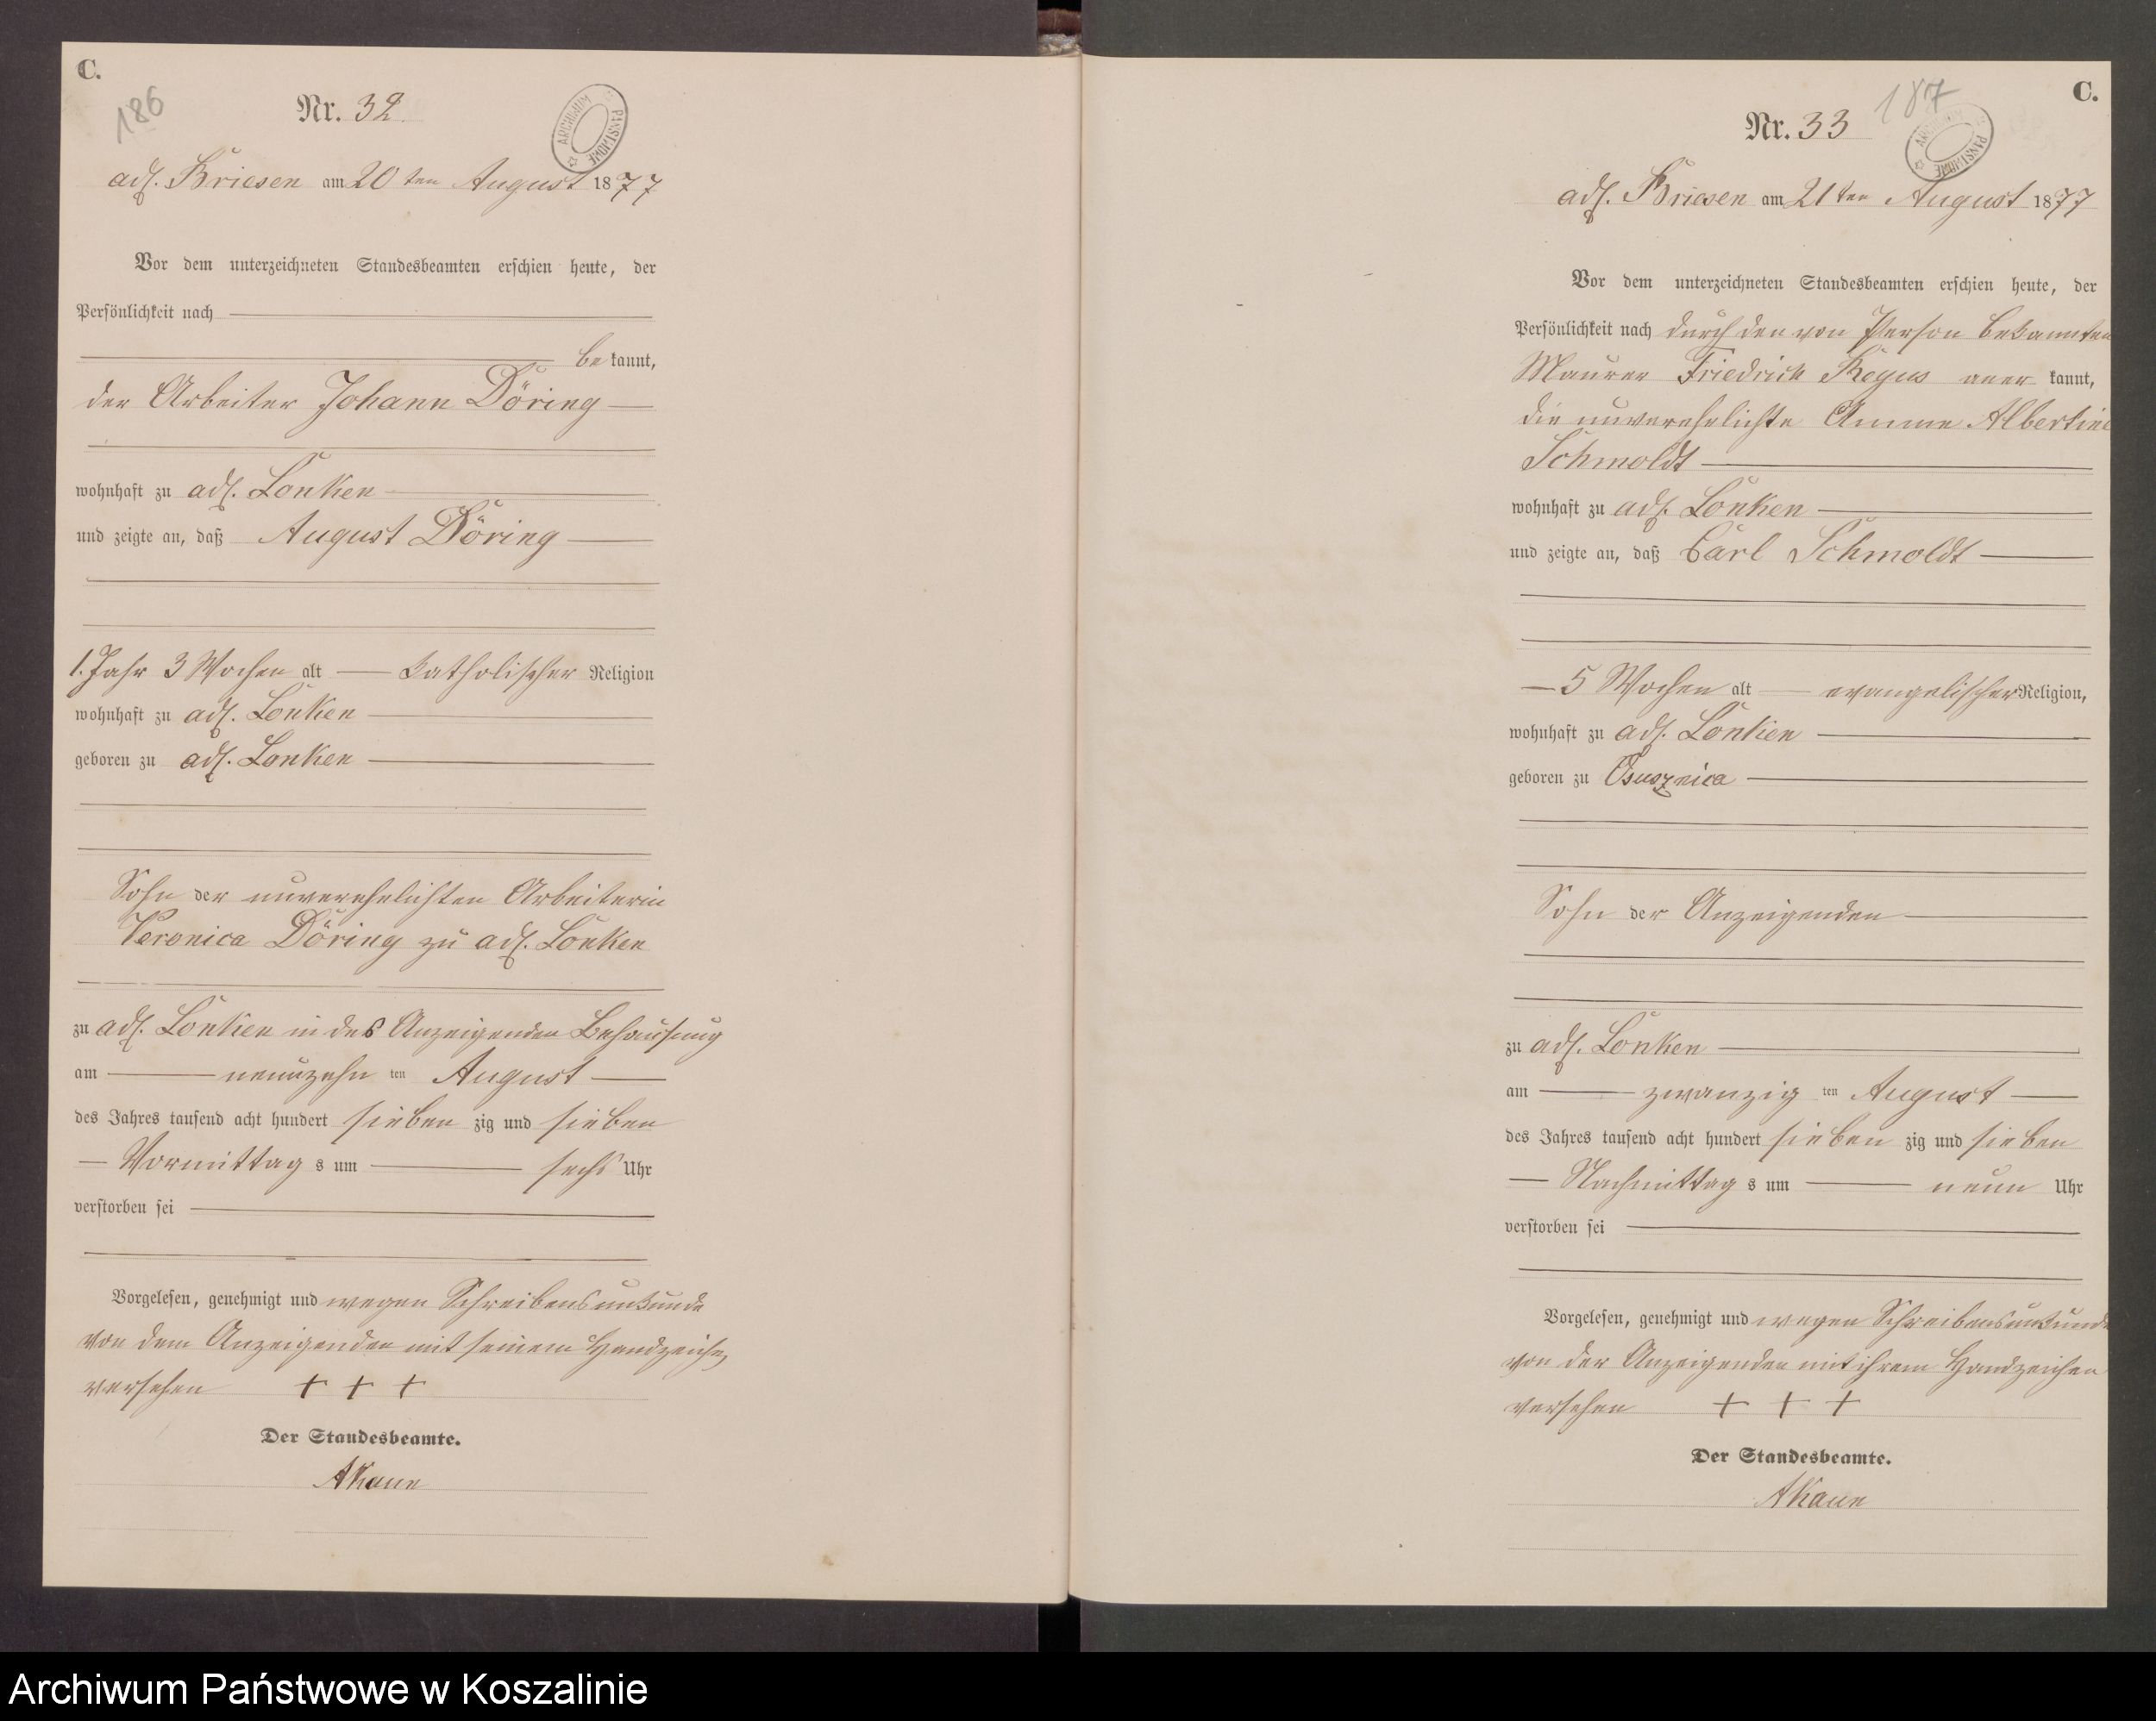 C.
186
Nr. 32.
ARCHIWUM PAŃSTWOWE
adl. Briesen am 20ten August 1877
Vor dem unterzeichneten Standesbeamten erschien heute, der
Persönlichkeit nach
bekannt,
der Arbeiter Johann Döring
wohnhaft zu adl. Lonken
und zeigte an, daß August Döring
1. Jahr 3 Wochen alt katholischer Religion
wohnhaft zu adl. Lonken
geboren zu adl. Lonken
Sohn der unverehelichten Arbeiterin
Veronica Döring zu adl. Lonken
zu adl. Lonken in des Anzeigenden Behausung
am neunzehn ten August
des Jahres tausend acht hundert sieben zig und sieben
Vormittags um sechs Uhr
verstorben sei
Vorgelesen, genehmigt und wegen Schreibensunkunde
von dem Anzeigenden mit seinem Handzeichen
versehen + + +
Der Standesbeamte.
AKaun
C.
187
Nr. 33
ARCHIWUM PAŃSTWOWE
adl. Briesen am 21ten August 1877
Vor dem unterzeichneten Standesbeamten erschien heute, der
Persönlichkeit nach durch den von Person bekannten
Maurer Friedrich Regus anerkannt,
die unverehelichte Amme Albertine
Schmoldt
wohnhaft zu adl. Lonken
und zeigte an, daß Carl Schmoldt
5 Wochen alt evangelischer Religion,
wohnhaft zu adl. Lonken
geboren zu Osusznica
Sohn der Anzeigenden
zu adl. Lonken
am zwanzig ten August
des Jahres tausend acht hundert sieben zig und sieben
Nachmittags um neun Uhr
verstorben sei
Vorgelesen, genehmigt und wegen Schreibensunkunde
von der Anzeigenden mit ihrem Handzeichen
versehen + + +
Der Standesbeamte.
AKaun
Archiwum Państwowe w Koszalinie